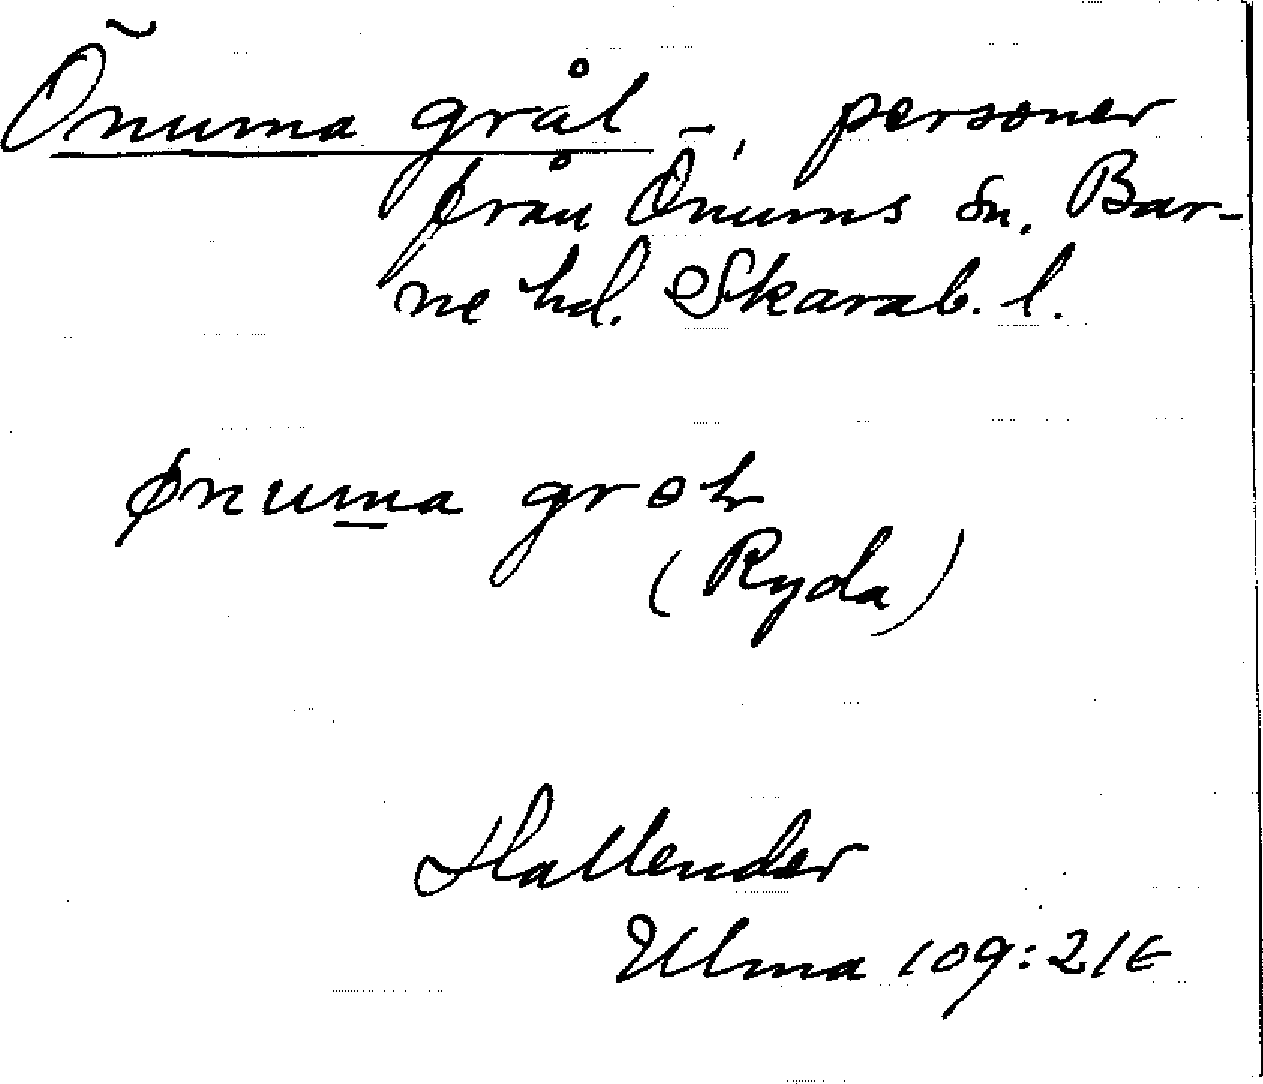 Õnuma grål –, personer
från Önums sn. Bar-
ne hd. Skarab. l.
ønuma groł
(Ryda)
Hallender
Ulma 109:216